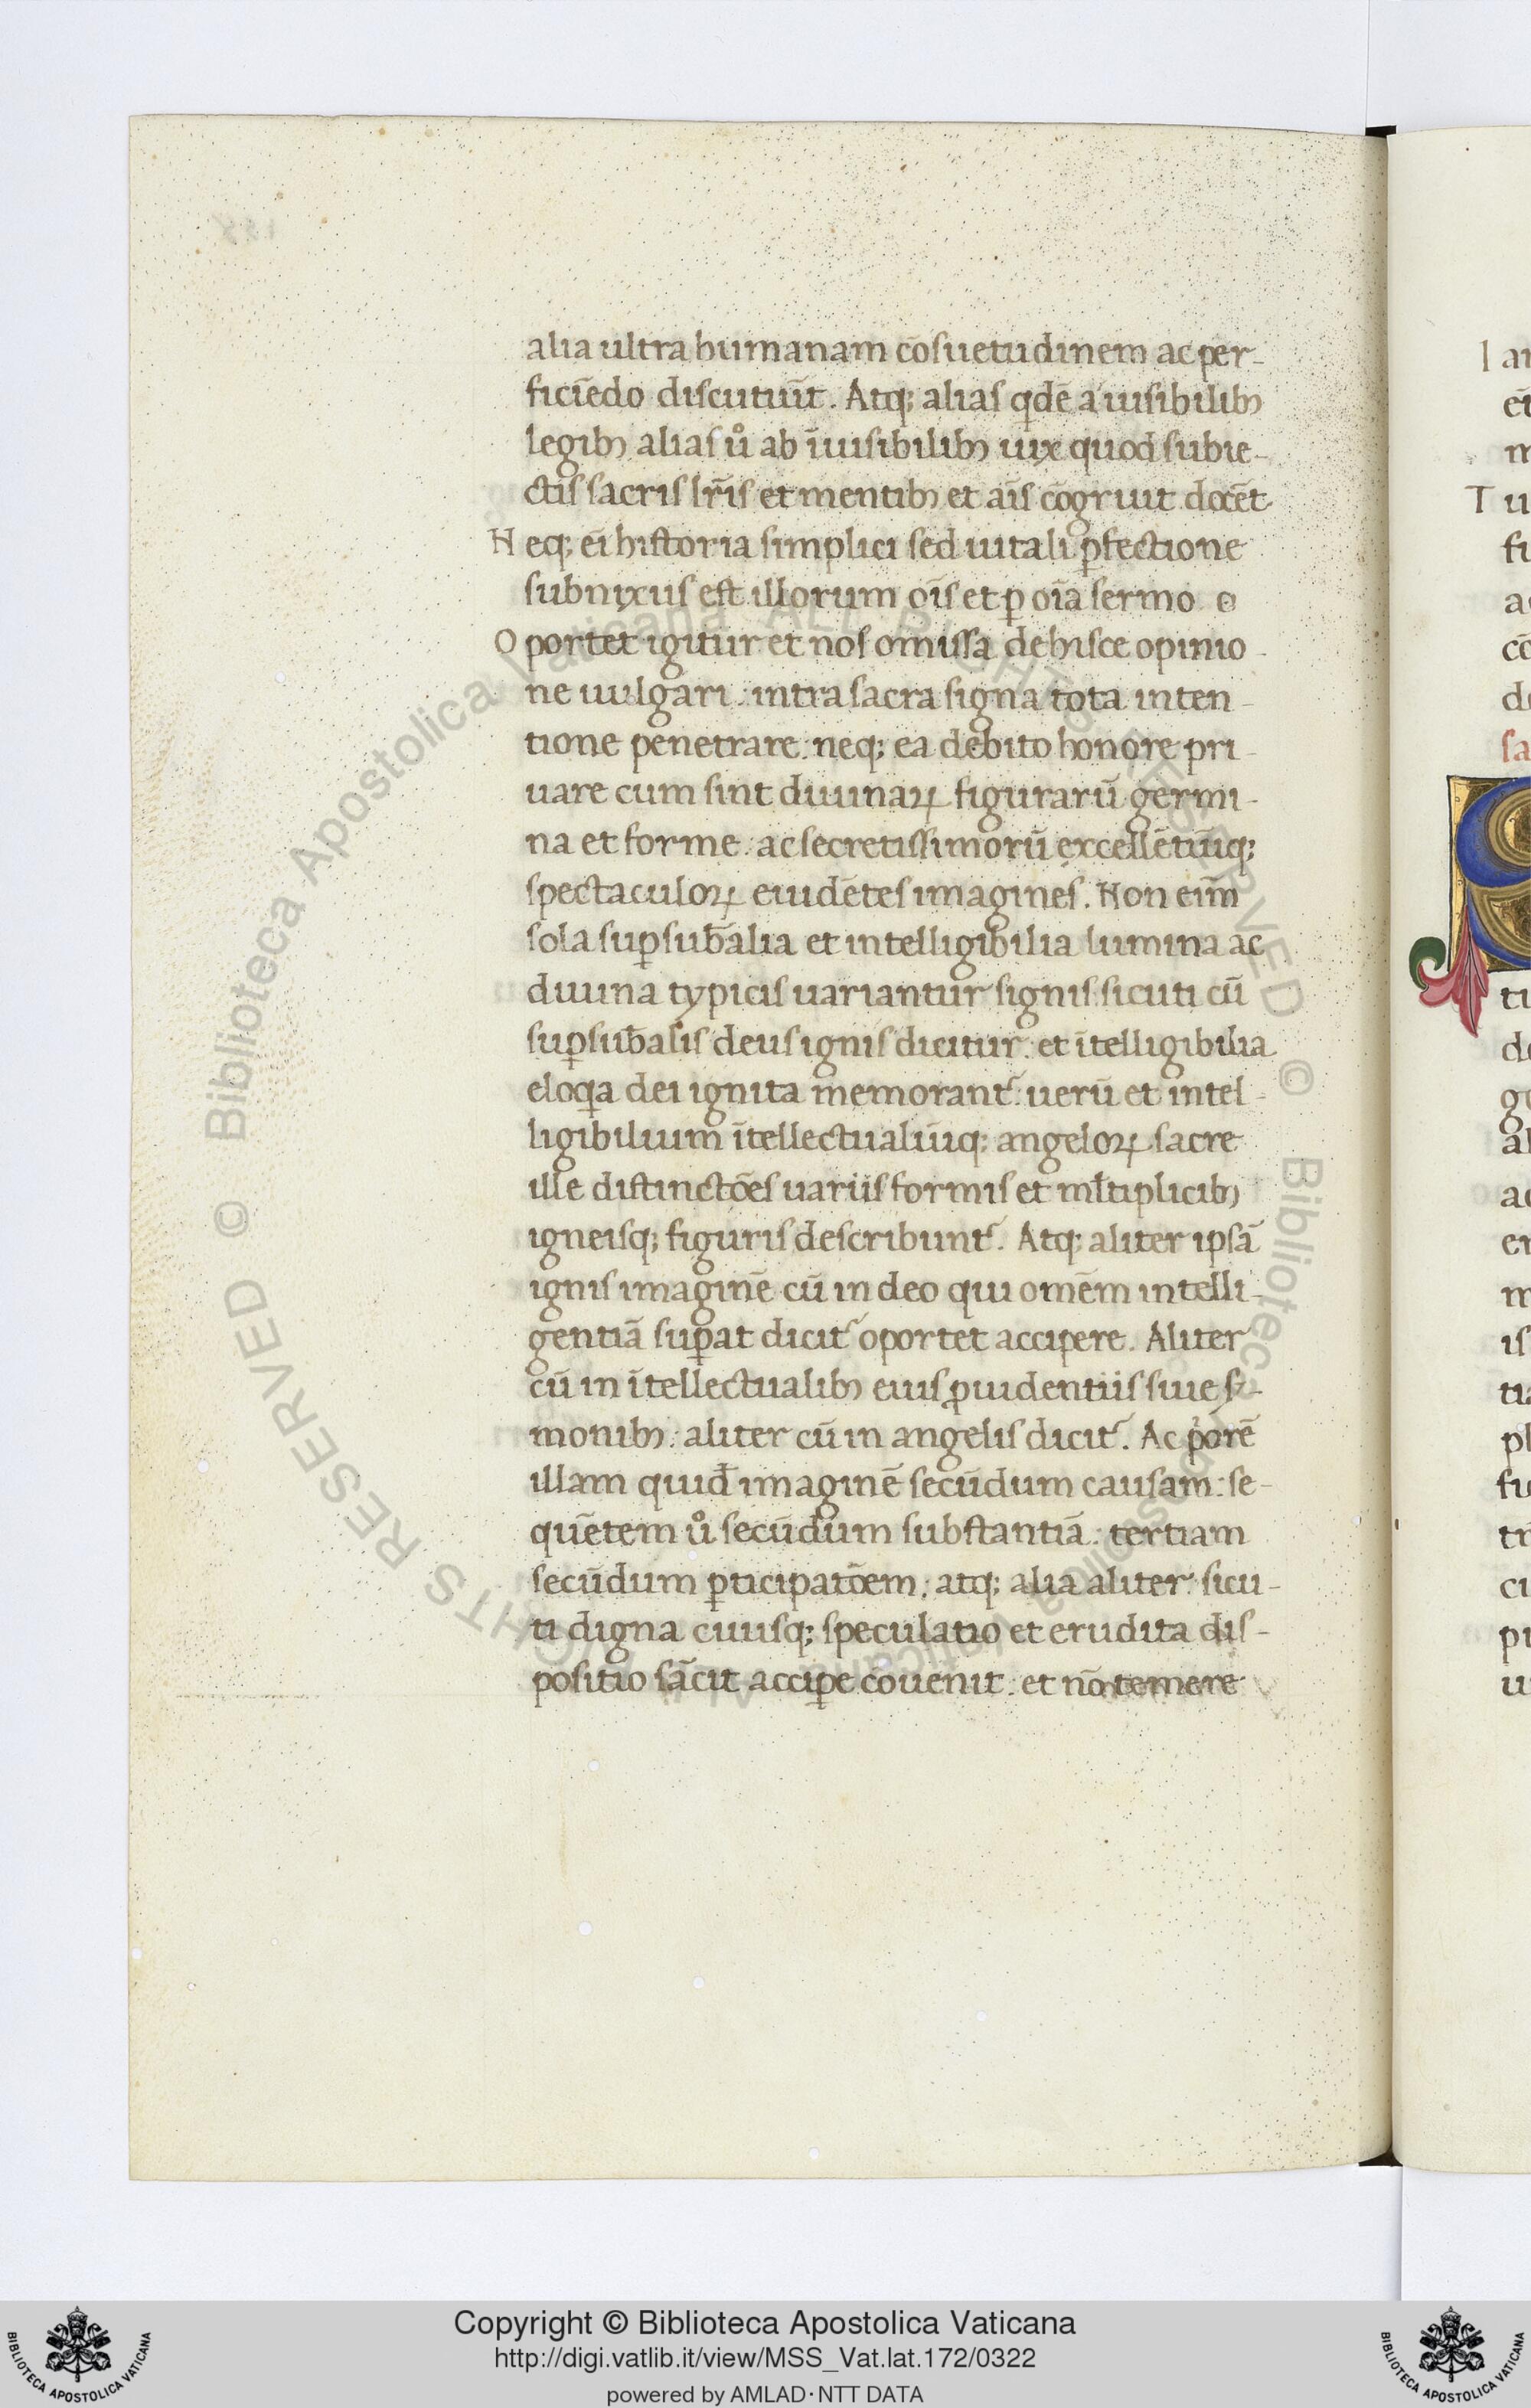 alia ultra humanam cōsuetudinem ac per-
ficiēdo discutiūt. Atq; alias qdē a uisibilibꝫ
legibꝫ alias uͦ ab īuisibilibꝫ uix quod subie-
ctis sacris lr̄is et mentibꝫ et aīs cōgruit docēt
Neq; eī historia simplici sed uitali ꝑfectione
subnixus est illorum oīs et ꝑ oīa sermo
Oportet igitur et nos omissa de hisce opinio-
ne uulgari: intra sacra signa tota inten-
tione penetrare: neq; ea debito honore pri-
uare cum sint diuinaꝝ figurarū germi-
na et forme: ac secretissimorū excellētiūq;
spectaculoꝝ euidētes imagines. Non eim̄
sola suꝑsub̄alia et intelligibilia lumina ac
diuina typicis uariantur signis: sicuti cū
suꝑsub̄alis deus ignis dicitur: et ītelligibilia
eloqa dei ignita memorantᷣ: uerū et intel-
ligibilium ītellectualiūq; angeloꝝ sacre
ille distinctōes uariis formis et ml̄tiplicibꝫ
igneisq; figuris describuntᷣ. Atq; aliter ipsā
ignis imaginē cū in deo qui omēm intelli-
gentiā suꝑat dicitᷣ oportet accipere. Aliter
cū in ītellectualibꝫ eius ꝓuidentiis siue ser-
monibꝫ: aliter cū in angelis dicitᷣ. Ac porē
illam quid̄ imaginē secūdum causam: se-
quētem uͦ secūdum substantiā: tertiam
secūdum ꝑticipatōem: atq; alia aliter: sicu-
ti digna cuiusq; speculatio et erudita dis-
positio sācit acciꝑe cōuenit: et nō temere
I
T
sa
Copyright © Biblioteca Apostolica Vaticana
http://digi.vatlib.it/view/MSS_Vat.lat.172/0322
powered by AMLAD·NTT DATA
BIBLIOTECA APOSTOLICA VATICANA
BIBLIOTECA APOSTOLICA VATICANA